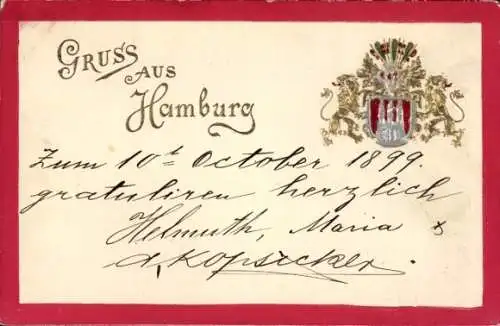 Gruss
aus
Hamburg
Zum 10t October 1899.
gratuliren herzlich
Helmuth, Maria